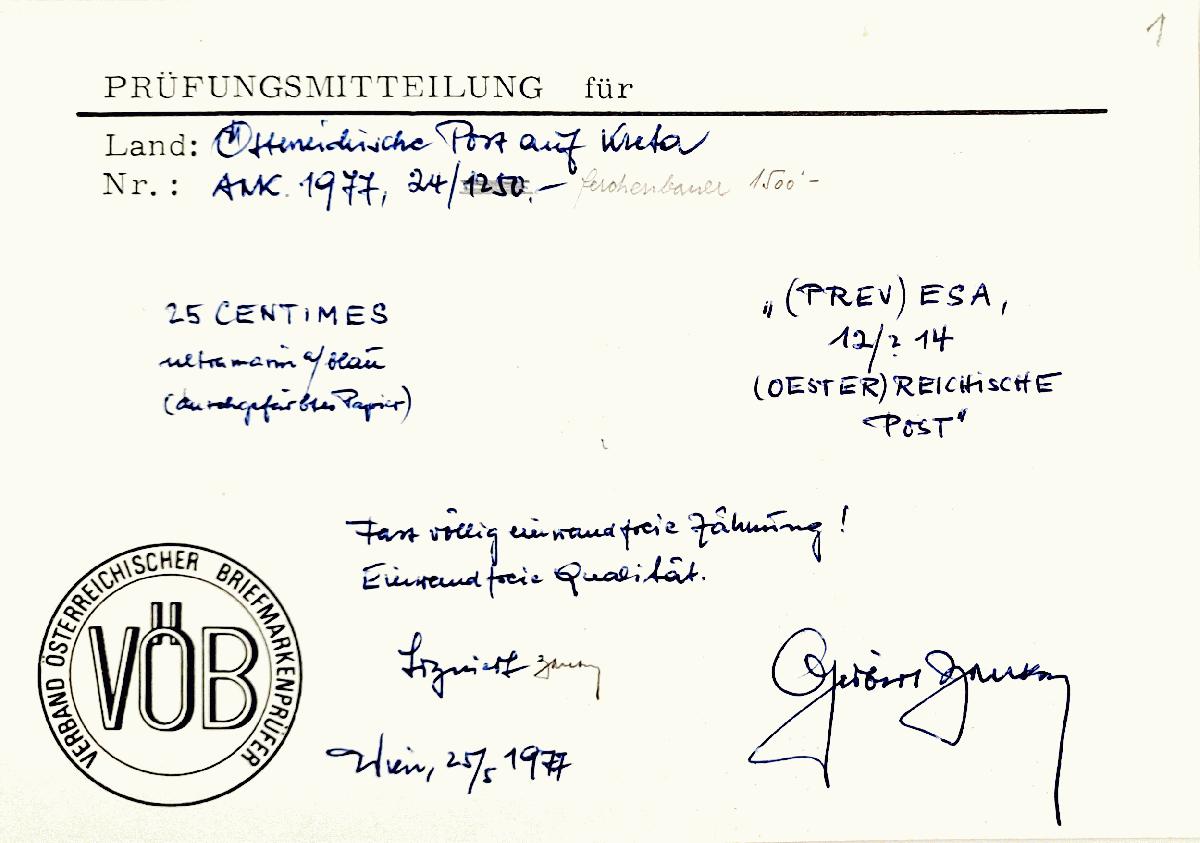 1
PRÜFUNGSMITTEILUNG für
Land: Österreichische Post auf Kreta
Nr.: ANK. 1977, 24/1250.— Ferchenbauer 1500'-
25 CENTIMES
ultramarin a/blau
(durchgefärbtes Papier)
„(PREV)ESA,
12/? 14
(OESTER)REICHISCHE
POST"
Fast völlig einwandfreie Zähnung!
Einwandfreie Qualität.
Signiert
Wien, 25/5 1977
VERBAND ÖSTERREICHISCHER BRIEFMARKENPRÜFER
VÖB